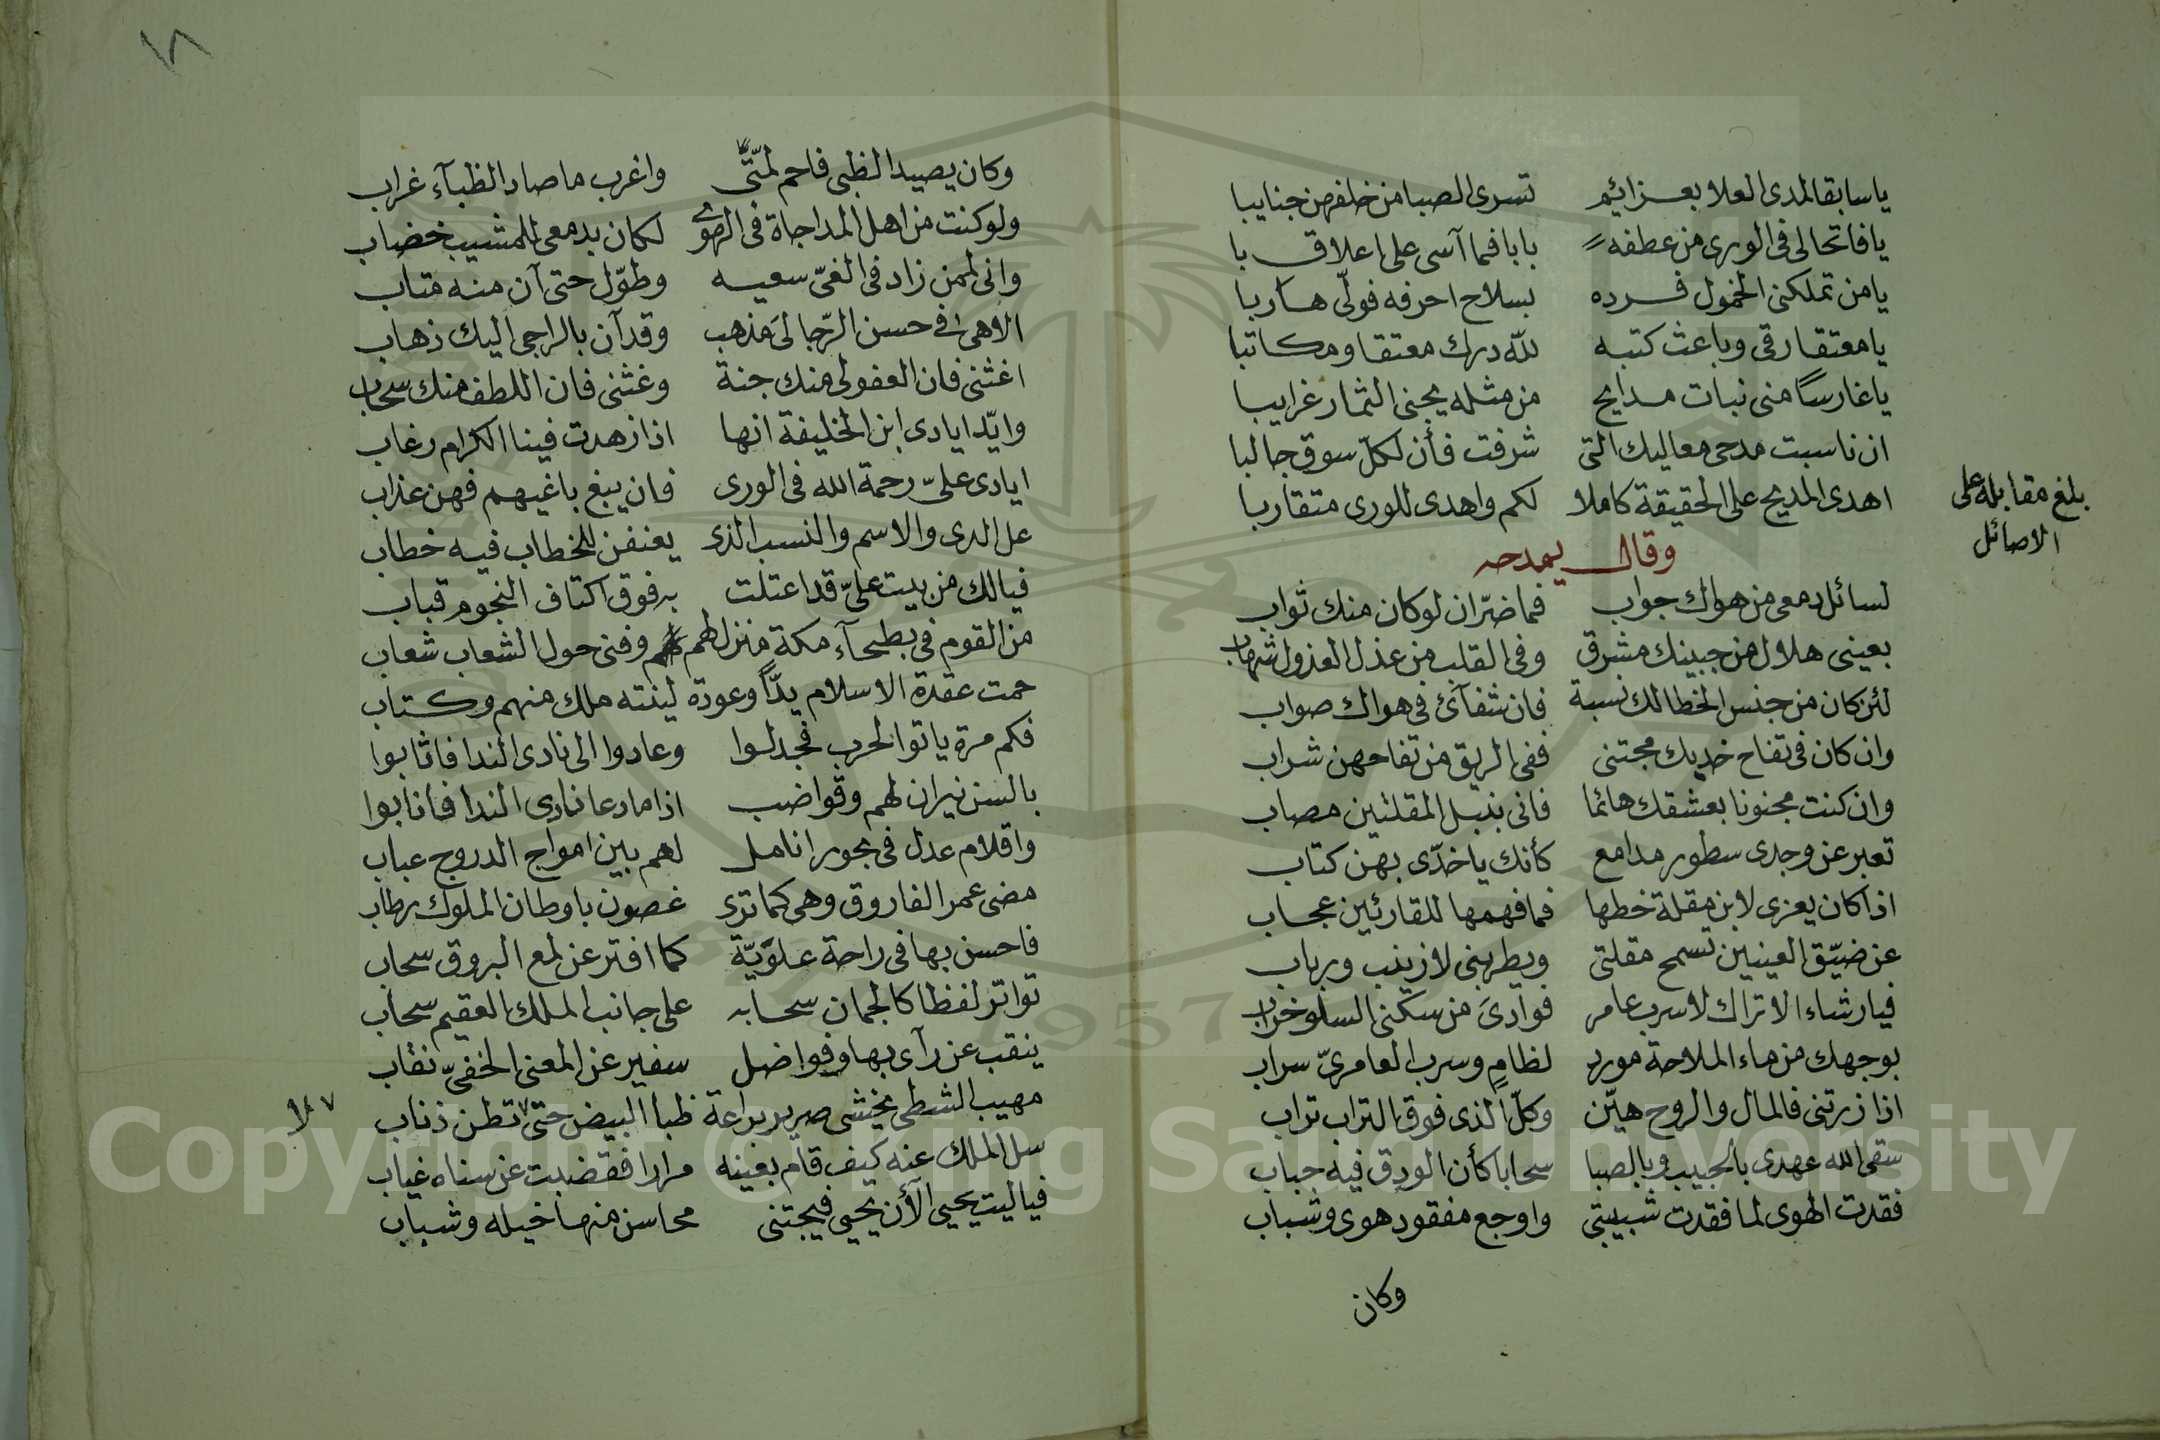 ياسابقا لمدى العلا بعزائيم تسرى الصبا من خلفهن جنايبا
يا فاتحا لى فى الورى من عطفه بابا فما آسى على اعلاق با
يا من تملكنى الخمول فرده بسلاح احرفه فولّى هاربا
يا معتقا رقى وباعث كتبه لله درك معتقا ومكاتبا
يا غارسًا منى نبات مدايح من مثله يجنى الثمار غرايبا
ان ناسبت مدحى معاليك التى شرفت فأن لكلّ سوق جالبا
اهدى المديح على الحقيقة كاملا لكم واهدى للورى متقاربا
بلغ مقابلة على
الاصائل
وقال يمدحه
لسائل دمعى من هواك جواب فما ضرّ ان لو كان منك ثواب
بعينى هلال من جبينك مشرق وفى القلب من عذل العذول شهاب
لئن كان من جنس الخطا لك نسبة فان شفآئى فى هواك صواب
وان كان فى تفاح خديك مجتنى ففى الريق من تفاحهن شراب
وان كنت مجنونا بعشقك هائما فانى بنبل المقلتين مصاب
تعبر عن وجدى سطور مدامع كأنك يا خدّى بهن كتاب
اذا كان يعزى لابن مقلة خطها فما فهمها للقارئين عجاب
عن ضيّق العينين تسمح مقلتى ويطربنى لا زينب ورباب
فيا رشاء الاتراك لا سرب عامر فوادىَ من سكنى السلو خراب
بوجهك من ماء الملاحة مورد لظامٍ وسرب العامرىّ سراب
اذا زرتنى فالمال والروح هيّن وكلّ الذى فوق التراب تراب
سقى الله عهدى بالحبيب وبالصبا سحابا كأن الودق فيه حباب
فقدت الهوى لما فقدت شبيبتى واوجع مفقود هوى وشباب
وكان
١٨
وكان يصيد الظبى فاحم لمّتى واغرب ما صاد الظبآء غراب
ولو كنت من اهل المداجاة فى الهوى لكان بدمعى للمشيب خضاب
وانى لممن زاد فى الغىّ سعيه وطوّل حتى آن منه متاب
الاهى فى حسن الرّجا لىَ مذهب وقد آن بالراجى اليك ذهاب
اغثنى فان العفو لى منك جنة وغثنى فان اللطف منك سحاب
وايّد ايادى ابن الخليفة انها اذا زهدت فينا الكرام رغاب
ايادى علىّ رحمة الله فى الورى فان يبغ باغيهم فهن عذاب
على الدى والاسم والنسب الذى يعنفن للخطاب فيه خطاب
فيالك من بيت علىّ قد اعتلت به فوق اكتاف النجوم قباب
من القوم فى بطحآء مكة منزل لهم وفى حول الشعاب شعاب
حمت عقدة الاسلام بدّاً وعودة ليثته ملك منهم وكتاب
فكم مرة ياتوا لحرب فجدلوا وعادوا الى نادى الندا فاثابوا
بالسن نيران لهم وقواضب اذا ما دعا نادى الندا فأنابوا
واقلام عدل فى بحور انامل لهم بين امواج الدروج عباب
مضى عمر الفاروق وهى كما ترى غصون باوطان الملوك رطاب
فاحسن بها فى راحة علوّيّة كما افتر عن لمع البروق سحاب
تواتر لفظا كالجمان سحابه على جانب الملك العقيم سحاب
ينقب عن رآى بها وفواضل سفير عن المعنى الخفىّ نقاب
مهيب الشطى يخشى صرير يراعة ظبا البيض حتى لا تطن ذناب
لا
سل الملك عنه كيف قام بعينه مرارا فقضبت عن سناه غياب
فيا ليت يحيى الآن يحيى فيجتنى محاسن منها خيله وشباب